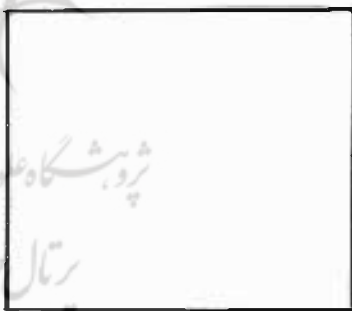 پژوهشگاه علو
پرتال